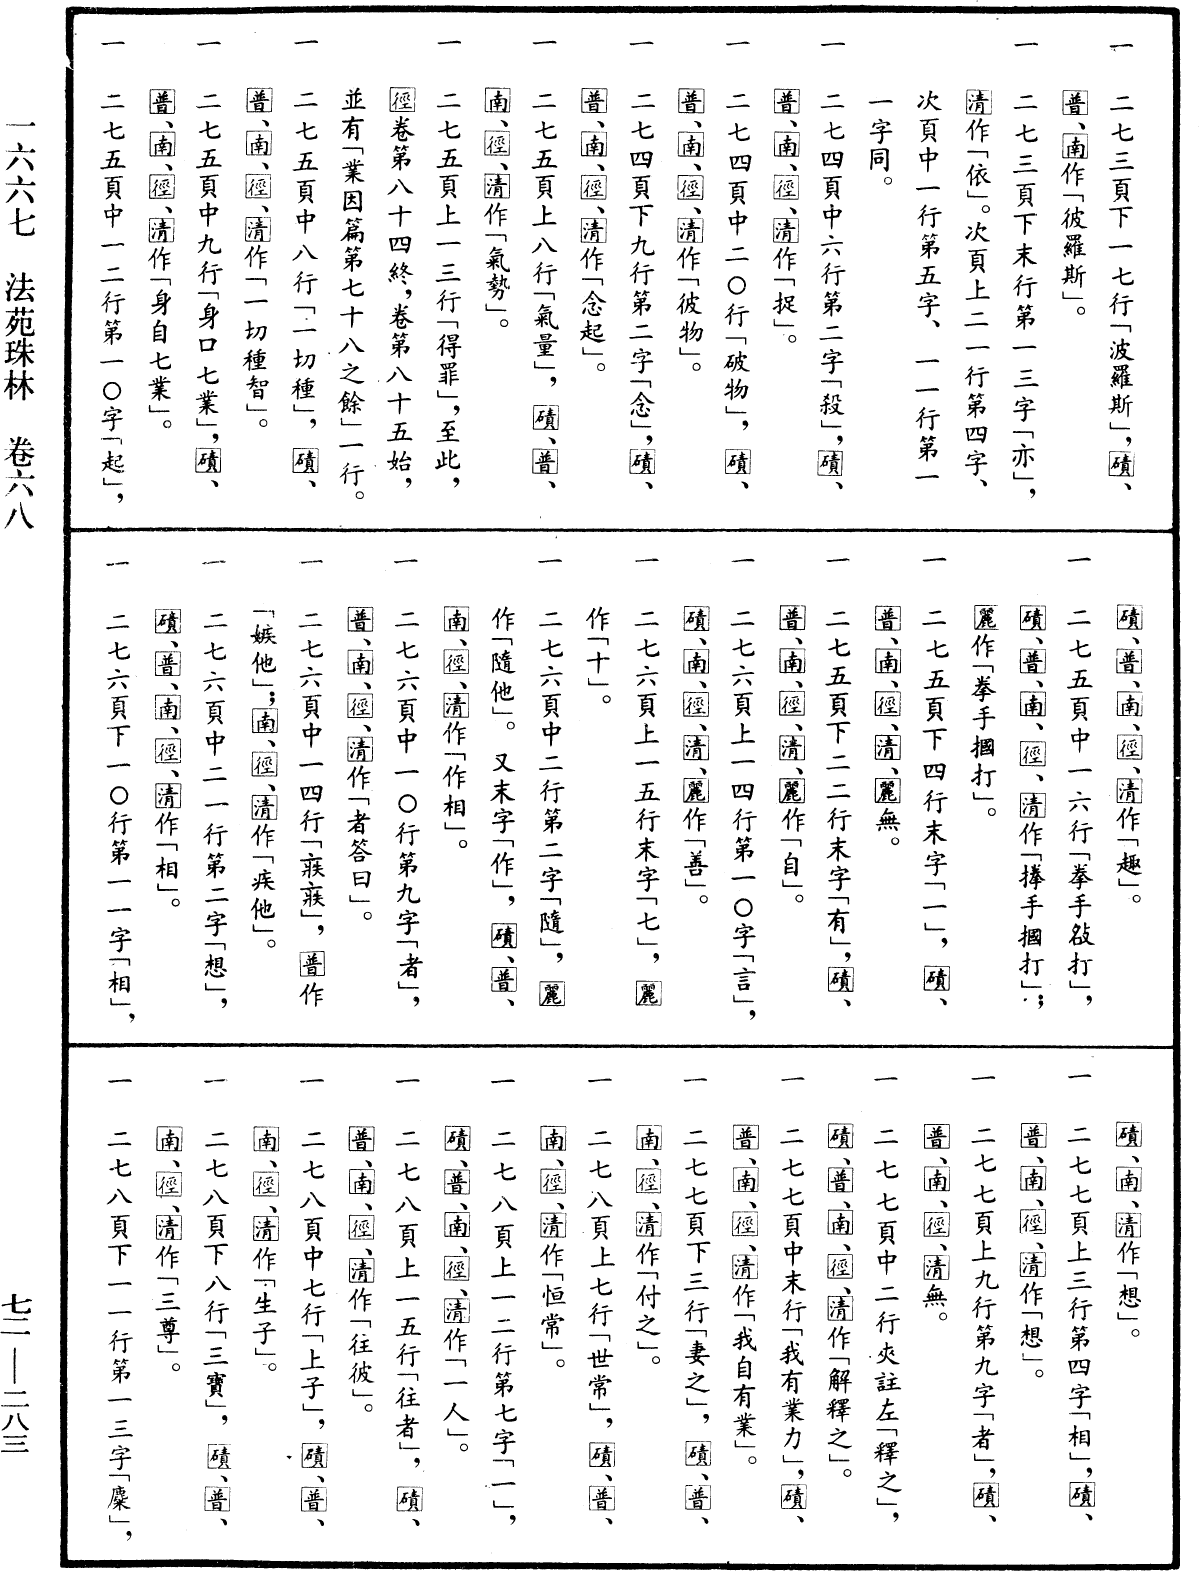 一　二七三頁下一七行「波羅斯」，磧、
普、南作「彼羅斯」。
一　二七三頁下末行第一三字「亦」，
清作「依」。次頁上二一行第四字、
次頁中一行第五字、一一行第一
一字同。
一　二七四頁中六行第二字「殺」，磧、
普、南、徑、清作「捉」。
一　二七四頁中二〇行「破物」，磧、
普、南、徑、清作「彼物」。
一　二七四頁下九行第二字「念」，磧、
普、南、徑、清作「念起」。
一　二七五頁上八行「氣量」，磧、普、
南、徑、清作「氣勢」。
一　二七五頁上一三行「得罪」，至此，
徑卷第八十四終，卷第八十五始，
並有「業因篇第七十八之餘」一行。
一　二七五頁中八行「一切種」，磧、
普、南、徑、清作「一切種智」。
一　二七五頁中九行「身口七業」，磧、
普、南、徑、清作「身自七業」。
一　二七五頁中一二行第一〇字「起」，
磧、普、南、徑、清作「趣」。
一　二七五頁中一六行「拳手敆打」，
磧、普、南、徑、清作「捧手摑打」；
麗作「拳手摑打」。
一　二七五頁下四行末字「一」，磧、
普、南、徑、清、麗無。
一　二七五頁下二二行末字「有」，磧、
普、南、徑、清、麗作「自」。
一　二七六頁上一四行第一〇字「言」，
磧、南、徑、清、麗作「善」。
一　二七六頁上一五行末字「七」，麗
作「十」。
一　二七六頁中二行第二字「隨」，麗
作「隨他」。又末字「作」，磧、普、
南、徑、清作「作相」。
一　二七六頁中一〇行第九字「者」，
普、南、徑、清作「者答曰」。
一　二七六頁中一四行「㾐㾐」，普作
「嫉他」；南、徑、清作「疾他」。
一　二七六頁中二一行第二字「想」，
磧、普、南、徑、清作「相」。
一　二七六頁下一〇行第一一字「相」，
磧、南、清作「想」。
一　二七七頁上三行第四字「相」，磧、
普、南、徑、清作「想」。
一　二七七頁上九行第九字「者」，磧、
普、南、徑、清無。
一　二七七頁中二行夾註左「釋之」，
磧、普、南、徑、清作「解釋之」。
一　二七七頁中末行「我有業力」，磧、
普、南、徑、清作「我自有業」。
一　二七七頁下三行「妻之」，磧、普、
南、徑、清作「付之」。
一　二七八頁上七行「世常」，磧、普、
南、徑、清作「恒常」。
一　二七八頁上一二行第七字「一」，
磧、普、南、徑、清作「一人」。
一　二七八頁上一五行「往者」，磧、
普、南、徑、清作「往彼」。
一　二七八頁中七行「上子」，磧、普、
南、徑、清作「生子」。
一　二七八頁下八行「三寶」，磧、普、
南、徑、清作「三尊」。
一　二七八頁下一一行第一三字「麋」，
一六六七　法苑珠林　卷六八
七二——二八三